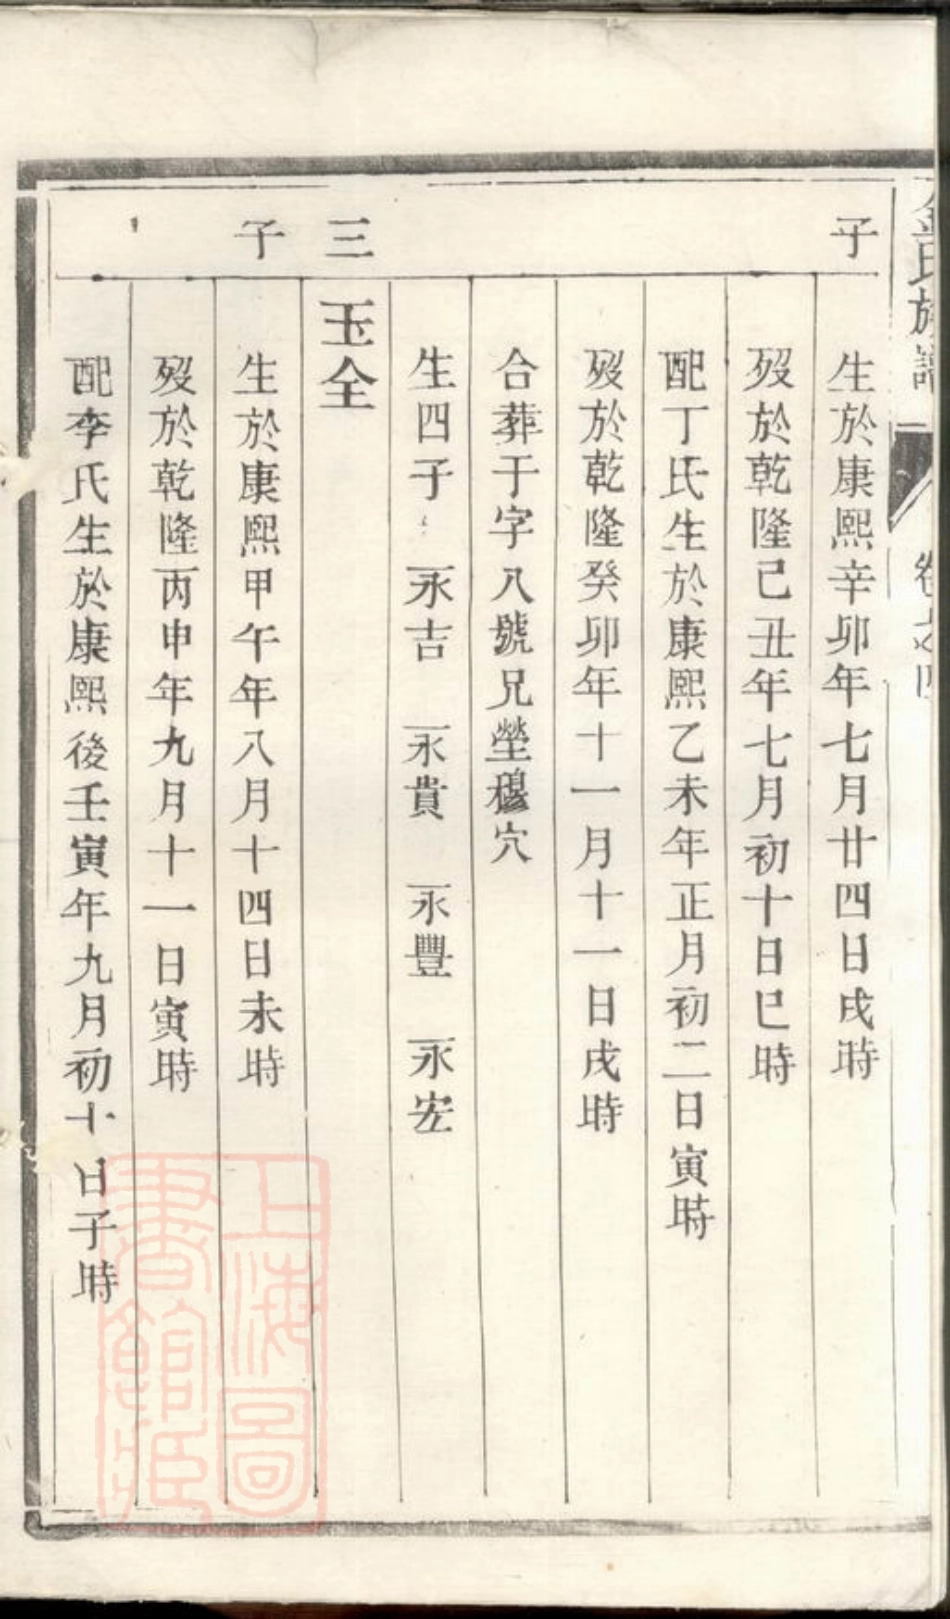 氏族譜
子
生於康熙辛卯年七月廿四日戌時
歿於乾隆己丑年七月初十日巳時
配丁氏生於康熙乙未年正月初二日寅時
歿於乾隆癸卯年十一月十一日戌時
合葬于字八號兄塋穆穴
生四子 永吉 永貴 永豐 永宏
三
玉全
子
生於康熙甲午年八月十四日未時
歿於乾隆丙申年九月十一日寅時
配李氏生於康熙後壬寅年九月初十日子時
上海圖
書館藏